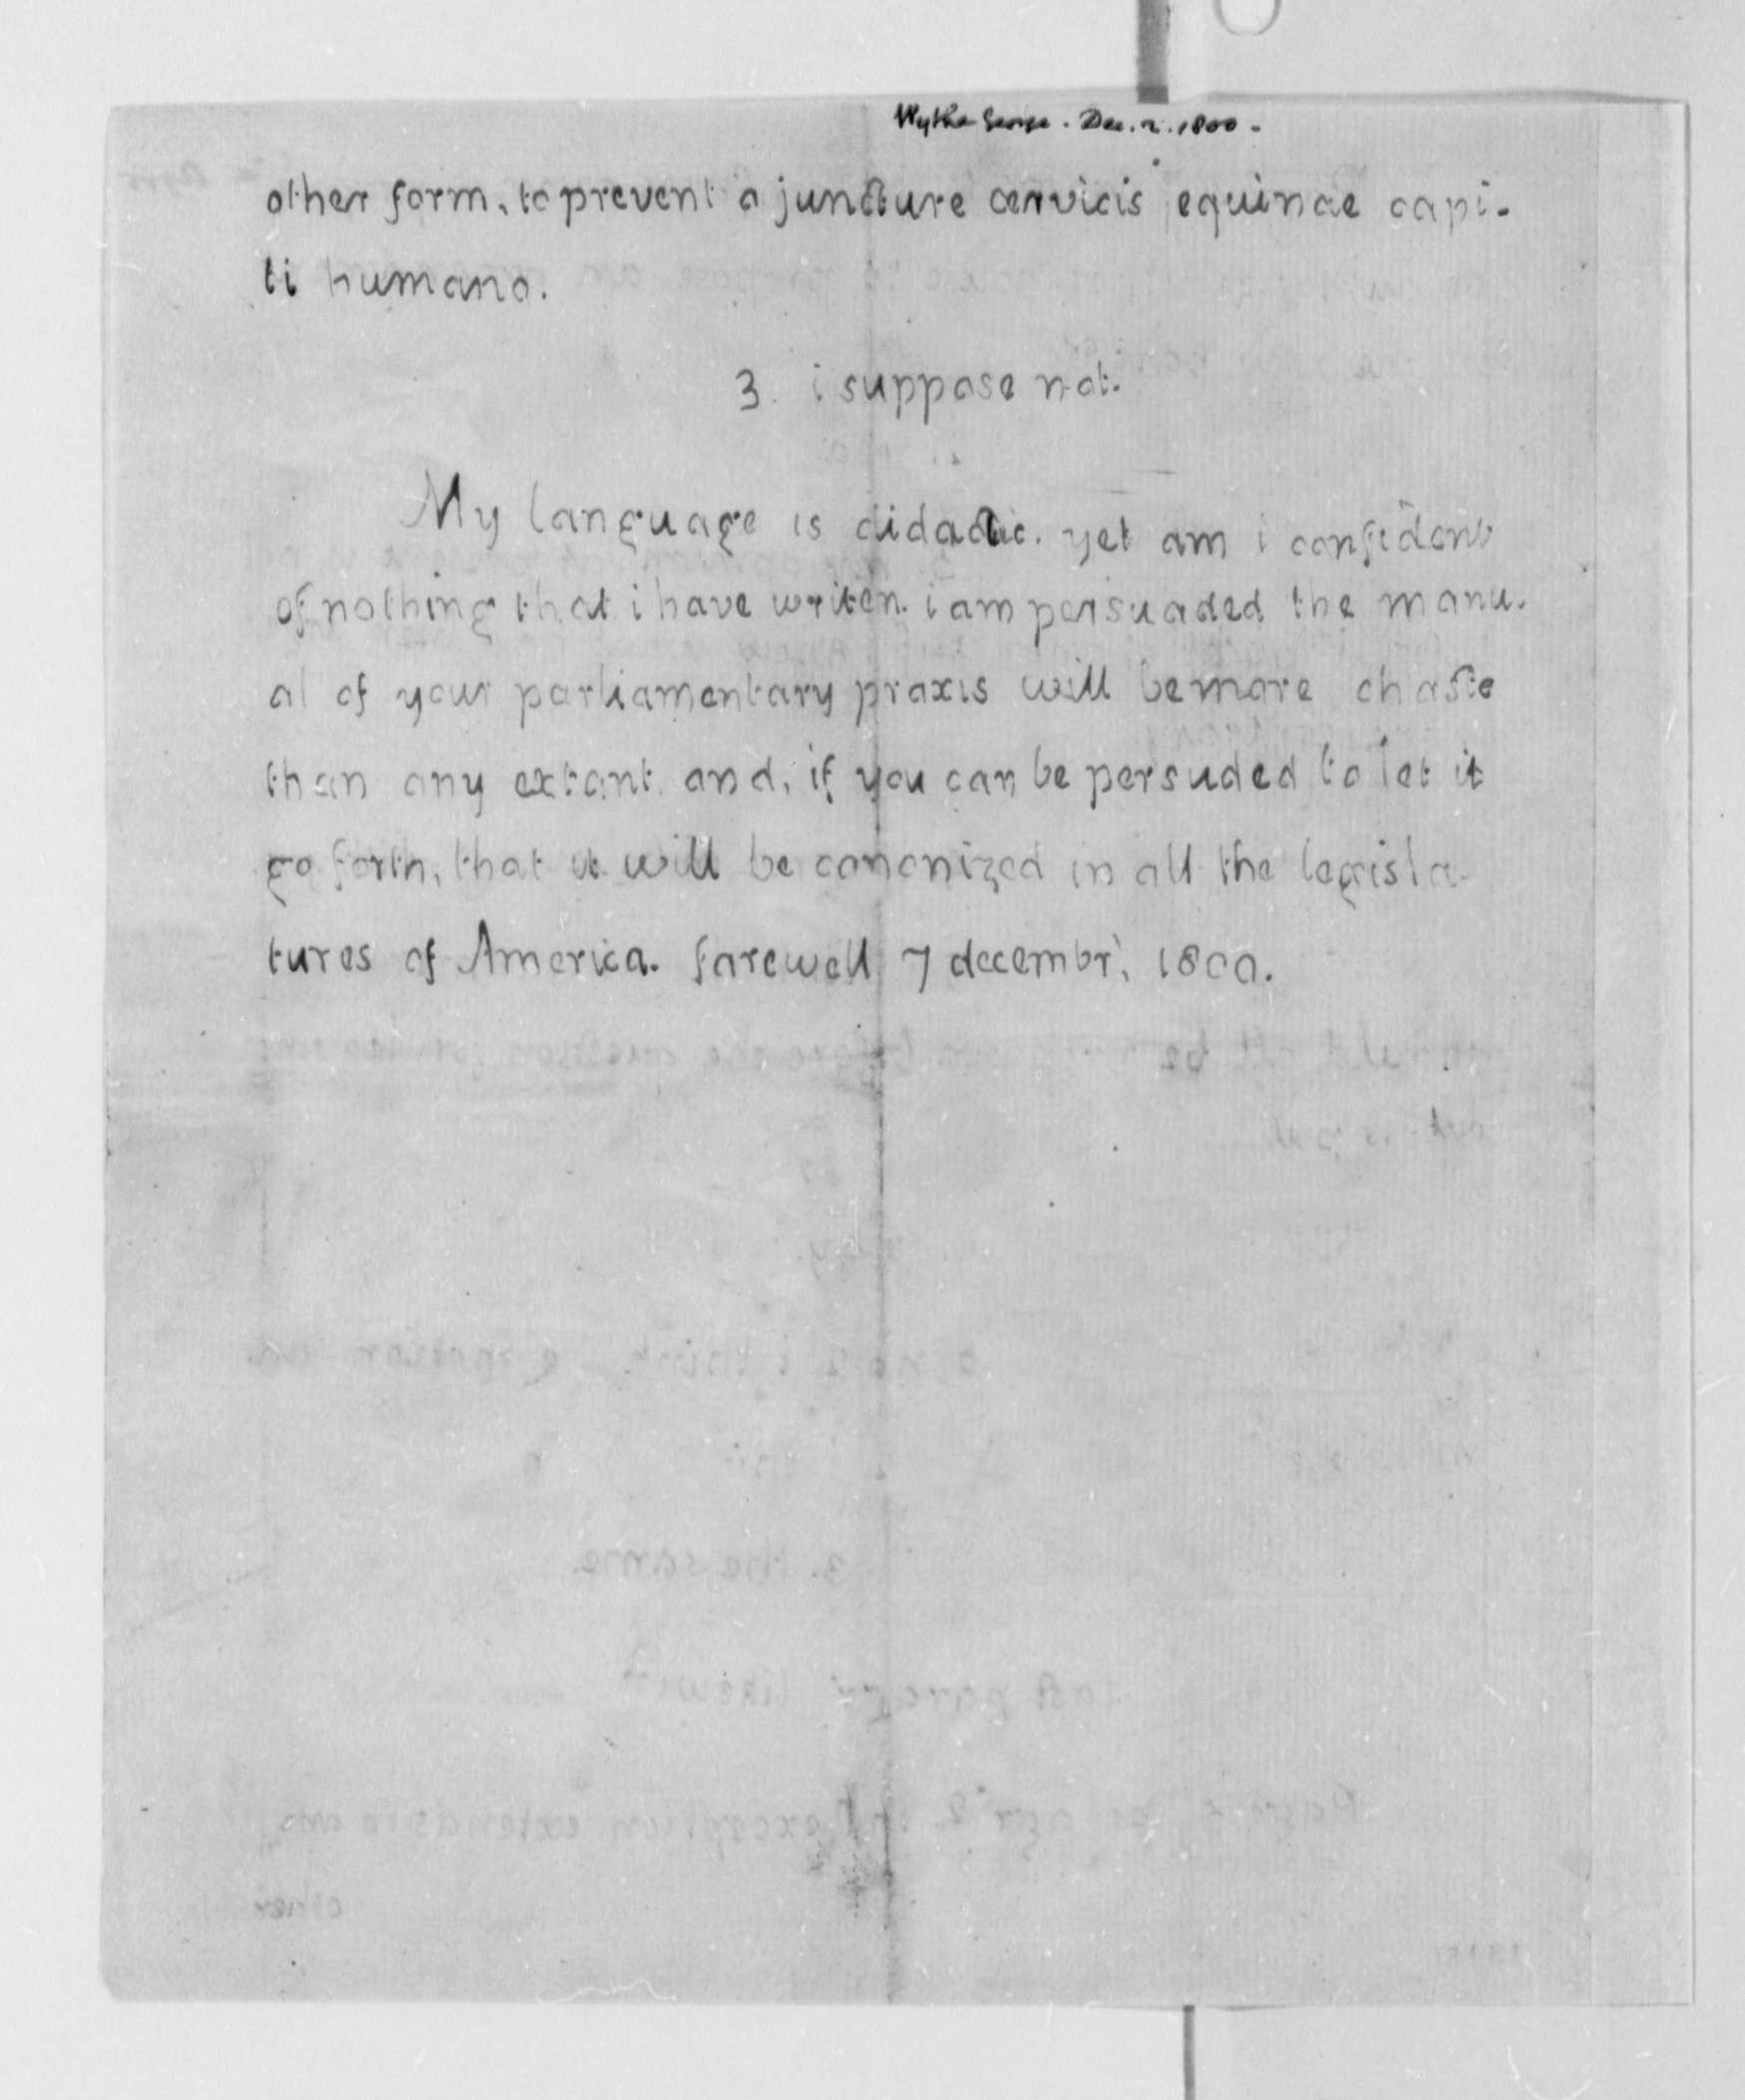 Wythe George. Dec. 7. 1800.
other form, to prevent a juncture cervicis equinae capi-
ti humano.
3. i suppose not.
My language is didactic. yet am i confident
of nothing that i have writen. i am persuaded the manu-
al of your parliamentary praxis will be more chaste
than any extant and, if you can be persuded to let it
go forth, that it will be canonized in all the legisla-
tures of America. farewell 7 decembr, 1800.